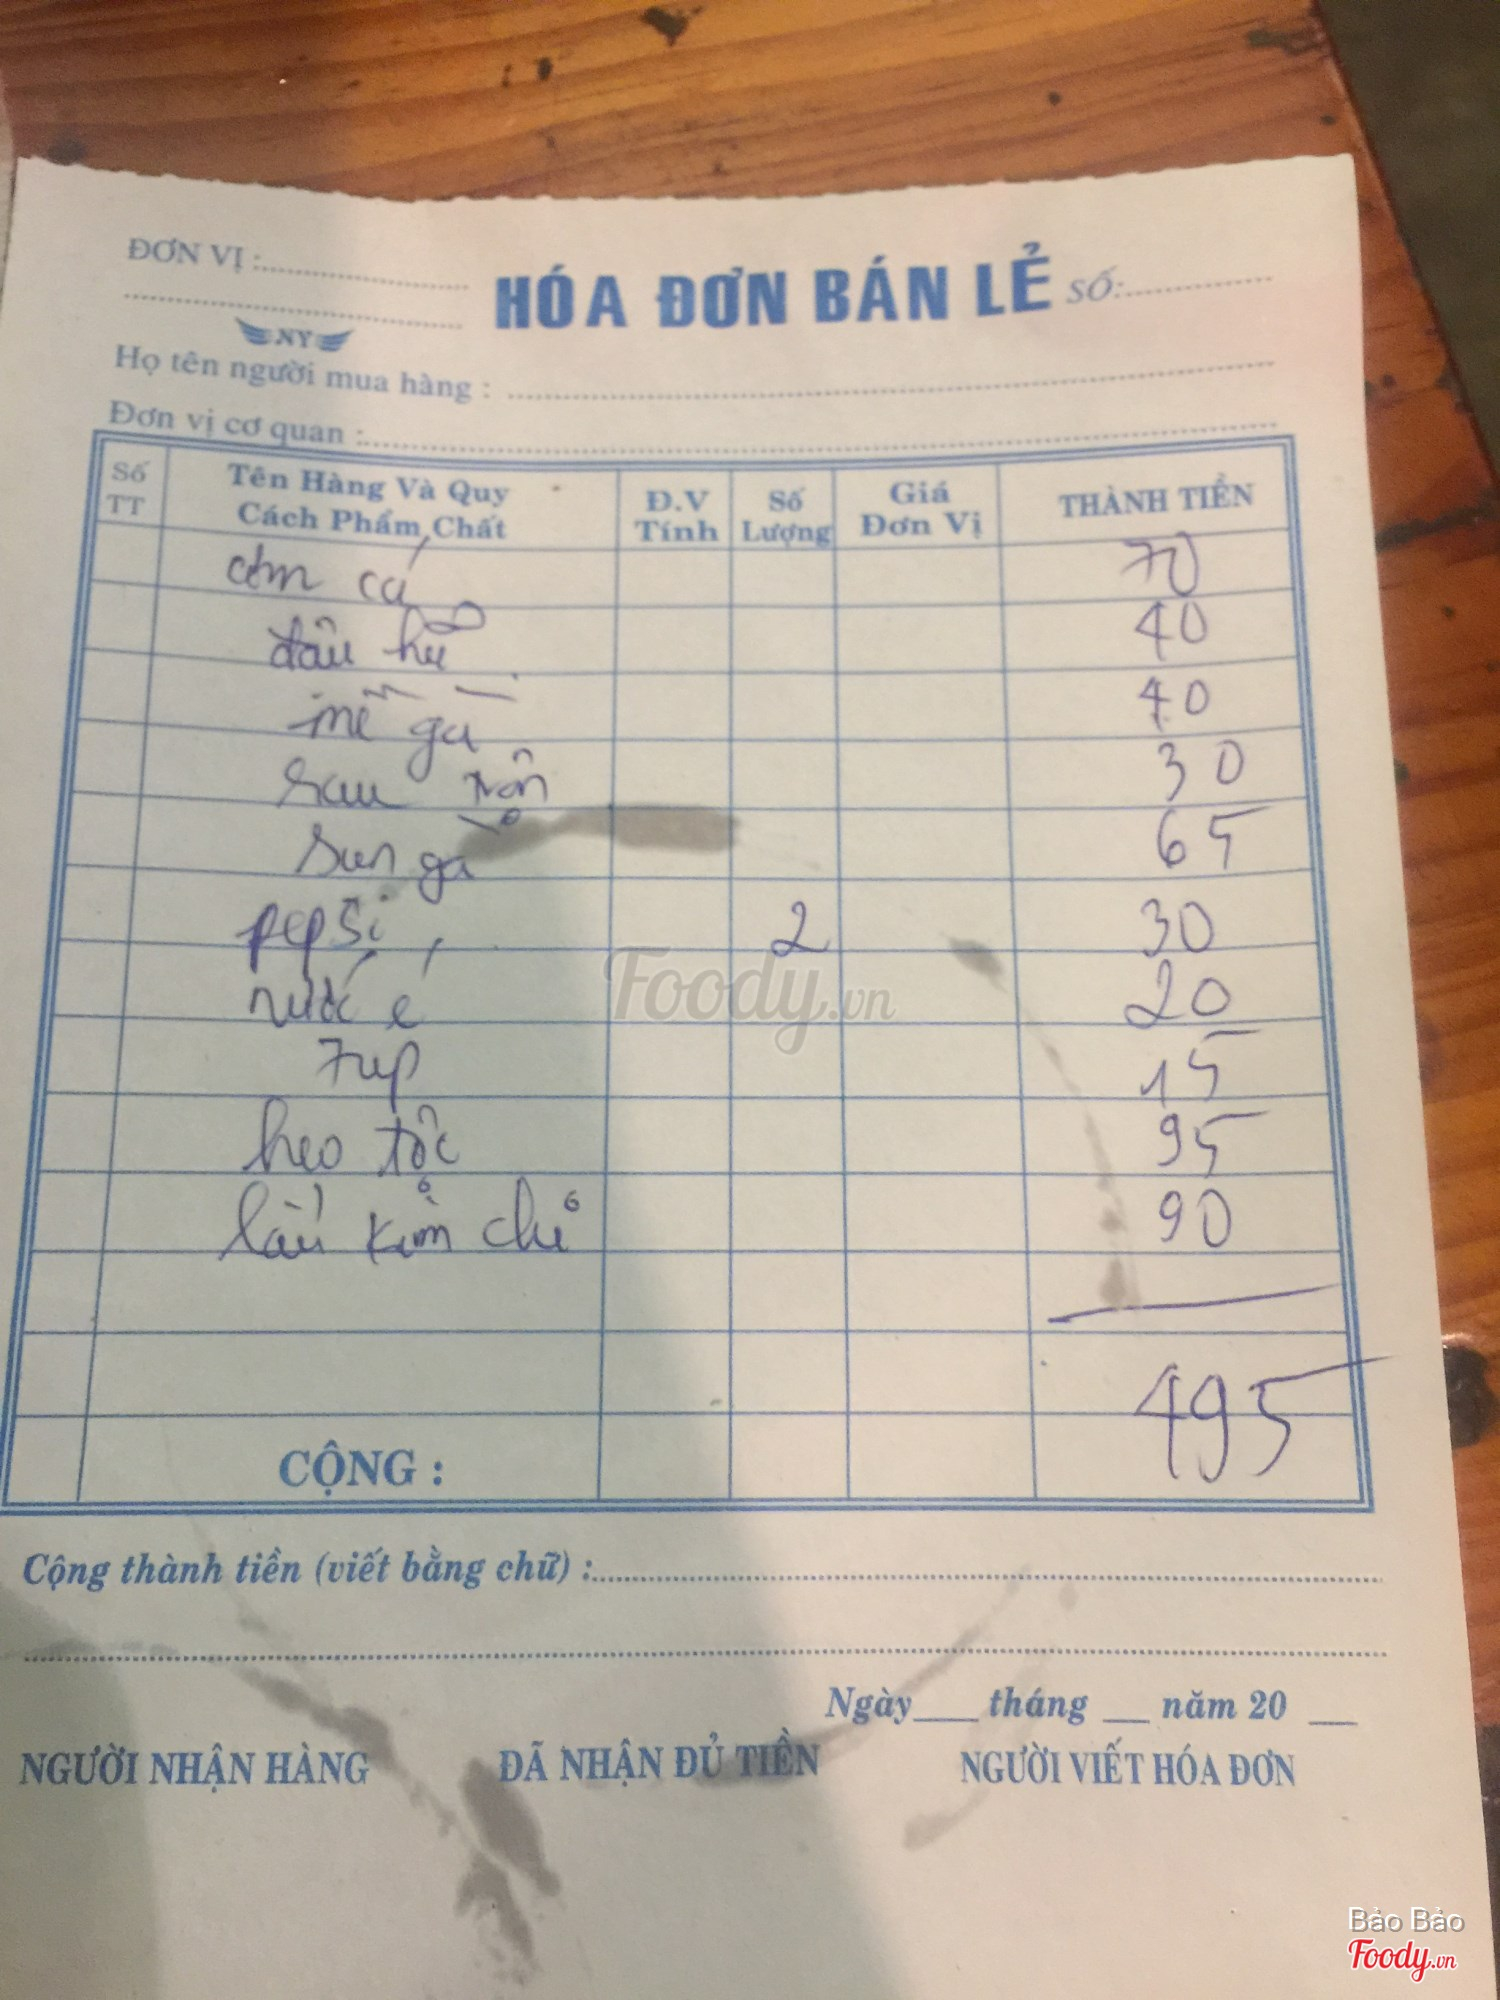 ĐƠN VỊ :
HÓA ĐƠN BÁN LẺ SỐ:
NY
Họ tên người mua hàng :
Đơn vị cơ quan :
Số TT Tên Hàng Và Quy Cách Phẩm Chất Đ.V Tính Số Lượng Giá Đơn Vị THÀNH TIỀN
cơm cá 70
đâu hũ 40
mề gà 40
rau trộn 30
sụn gà 65
pepsi 2 30
nước é 20
7up 15
heo tộc 95
lẩu kim chi 90
495
CỘNG :
Cộng thành tiền (viết bằng chữ) :
Ngày___ tháng __ năm 20 __
NGƯỜI NHẬN HÀNG ĐÃ NHẬN ĐỦ TIỀN NGƯỜI VIẾT HÓA ĐƠN
Foody.vn
Bảo Bảo
Foody.vn